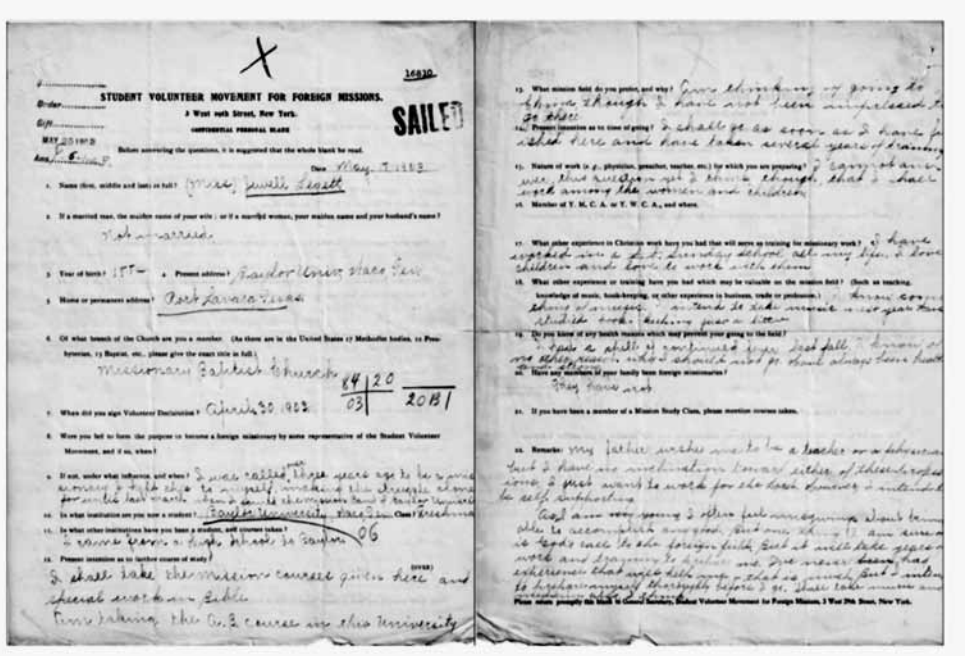 16830
STUDENT VOLUNTEER MOVEMENT FOR FOREIGN MISSIONS.
3 West 29th Street, New York.
CONFIDENTIAL PERSONAL BLANK
SAILED
Order
Gift
MAY 25 1903
Ans.
Before answering the questions, it is suggested that the whole blank be read.
Date May 1903
1. Name (first, middle and last) in full? (Miss) Jewell Legett
2. If a married man, the maiden name of your wife; or if a married woman, your maiden name and your husband's name?
Not married
3. Year of birth? 4. Present address? Baylor Univ, Waco, Tex
5. Home or permanent address? Port Lavaca Texas
6. Of what branch of the Church are you a member. (As there are in the United States 17 Methodist bodies, 12 Presbyterian, 13 Baptist, etc., please give the exact title in full)
Missionary Baptist Church
84 20
03
20 B 1
7. When did you sign Volunteer Declaration? April 30, 1903
8. Were you led to form the purpose to become a foreign missionary by some representative of the Student Volunteer
Movement, and if so, when?
9. If not, under what influence, and when? I was called three years ago to be a missionary
for until last March
10. In what institution are you now a student? Baylor University Waco Tex Class? Freshman
11. In what other institutions have you been a student, and courses taken?
I came from a high school to Baylor 06
12. Present intention as to further course of study? (OVER)
I shall take the mission courses given here and
special work in Bible
I'm taking the A.B course in this University
13. What mission field do you prefer, and why? I am thinking of going to
China though I have not been impressed to
go there
14. Present intention as to time of going? I shall go as soon as I have fin
ished here and have taken several years of training
15. Nature of work (e.g., physician, preacher, teacher, etc.) for which you are preparing? I cannot ans-
wer this question yet I think though, that I shall
work among the women and children
16. Member of Y. M. C. A. or Y. W. C. A., and where.
17. What other experience in Christian work have you had that will serve as training for missionary work? I have
worked in a Sunday school all my life, I love
children and love to work with them
18. What other experience or training have you had which may be valuable on the mission field? (Such as teaching,
knowledge of music, book-keeping, or other experience in business, trade or profession.) I know some
thing of music. I intend to take music next year Have
studied book-keeping just a little
19. Do you know of any health reason which may prevent your going to the field?
I had a spell of continued fever last fall I know of
no other reason why I should not go Have always been healthy
and strong
20. Have any members of your family been foreign missionaries?
They have not
21. If you have been a member of a Mission Study Class, please mention courses taken.
22. Remarks: My father wishes me to be a teacher or a
but I have no inclination toward either of these
I just want to work for the Lord However I intend to
be self supporting
As I am very young I often feel misgivings about being
able to accomplish any good, but one thing I am sure of
is God's call to the foreign field, but it will take years of
work and training to me I've never had
experience that will help me, that is much, but I intend
to thoroughly before I go. I shall take music and
Please return promptly this blank to General Secretary, Student Volunteer Movement for Foreign Missions, 3 West 29th Street, New York.